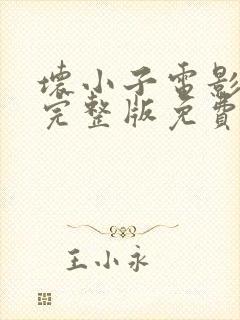 壞小子電影
完整版免費
王小永